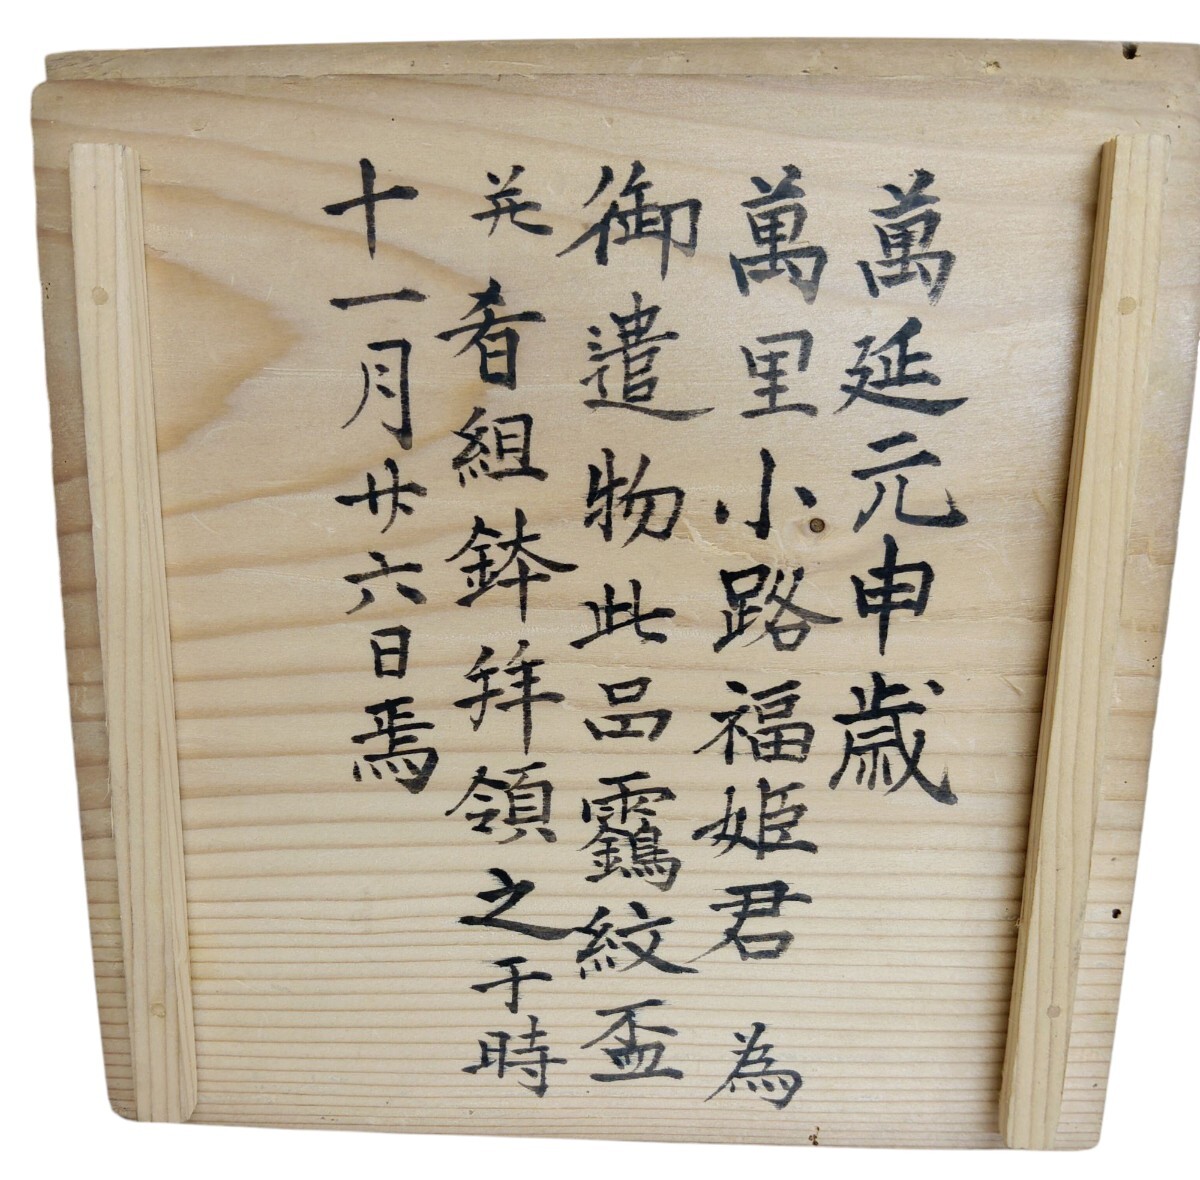 萬延元申歳
萬里小路福姫君 為
御遣物此品靏紋盃
并肴組鉢拜領之于時
十一月廿六日焉